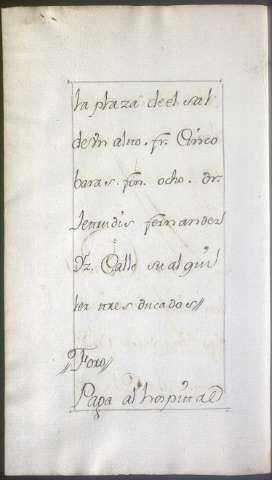 la plaza de el sal
de Vn alto. fr. Cinco
baras. fon. ocho. dr.
fernandez
Dz. Calle su alqui
ler tres ducados//
//Foro//
Paga al hospital